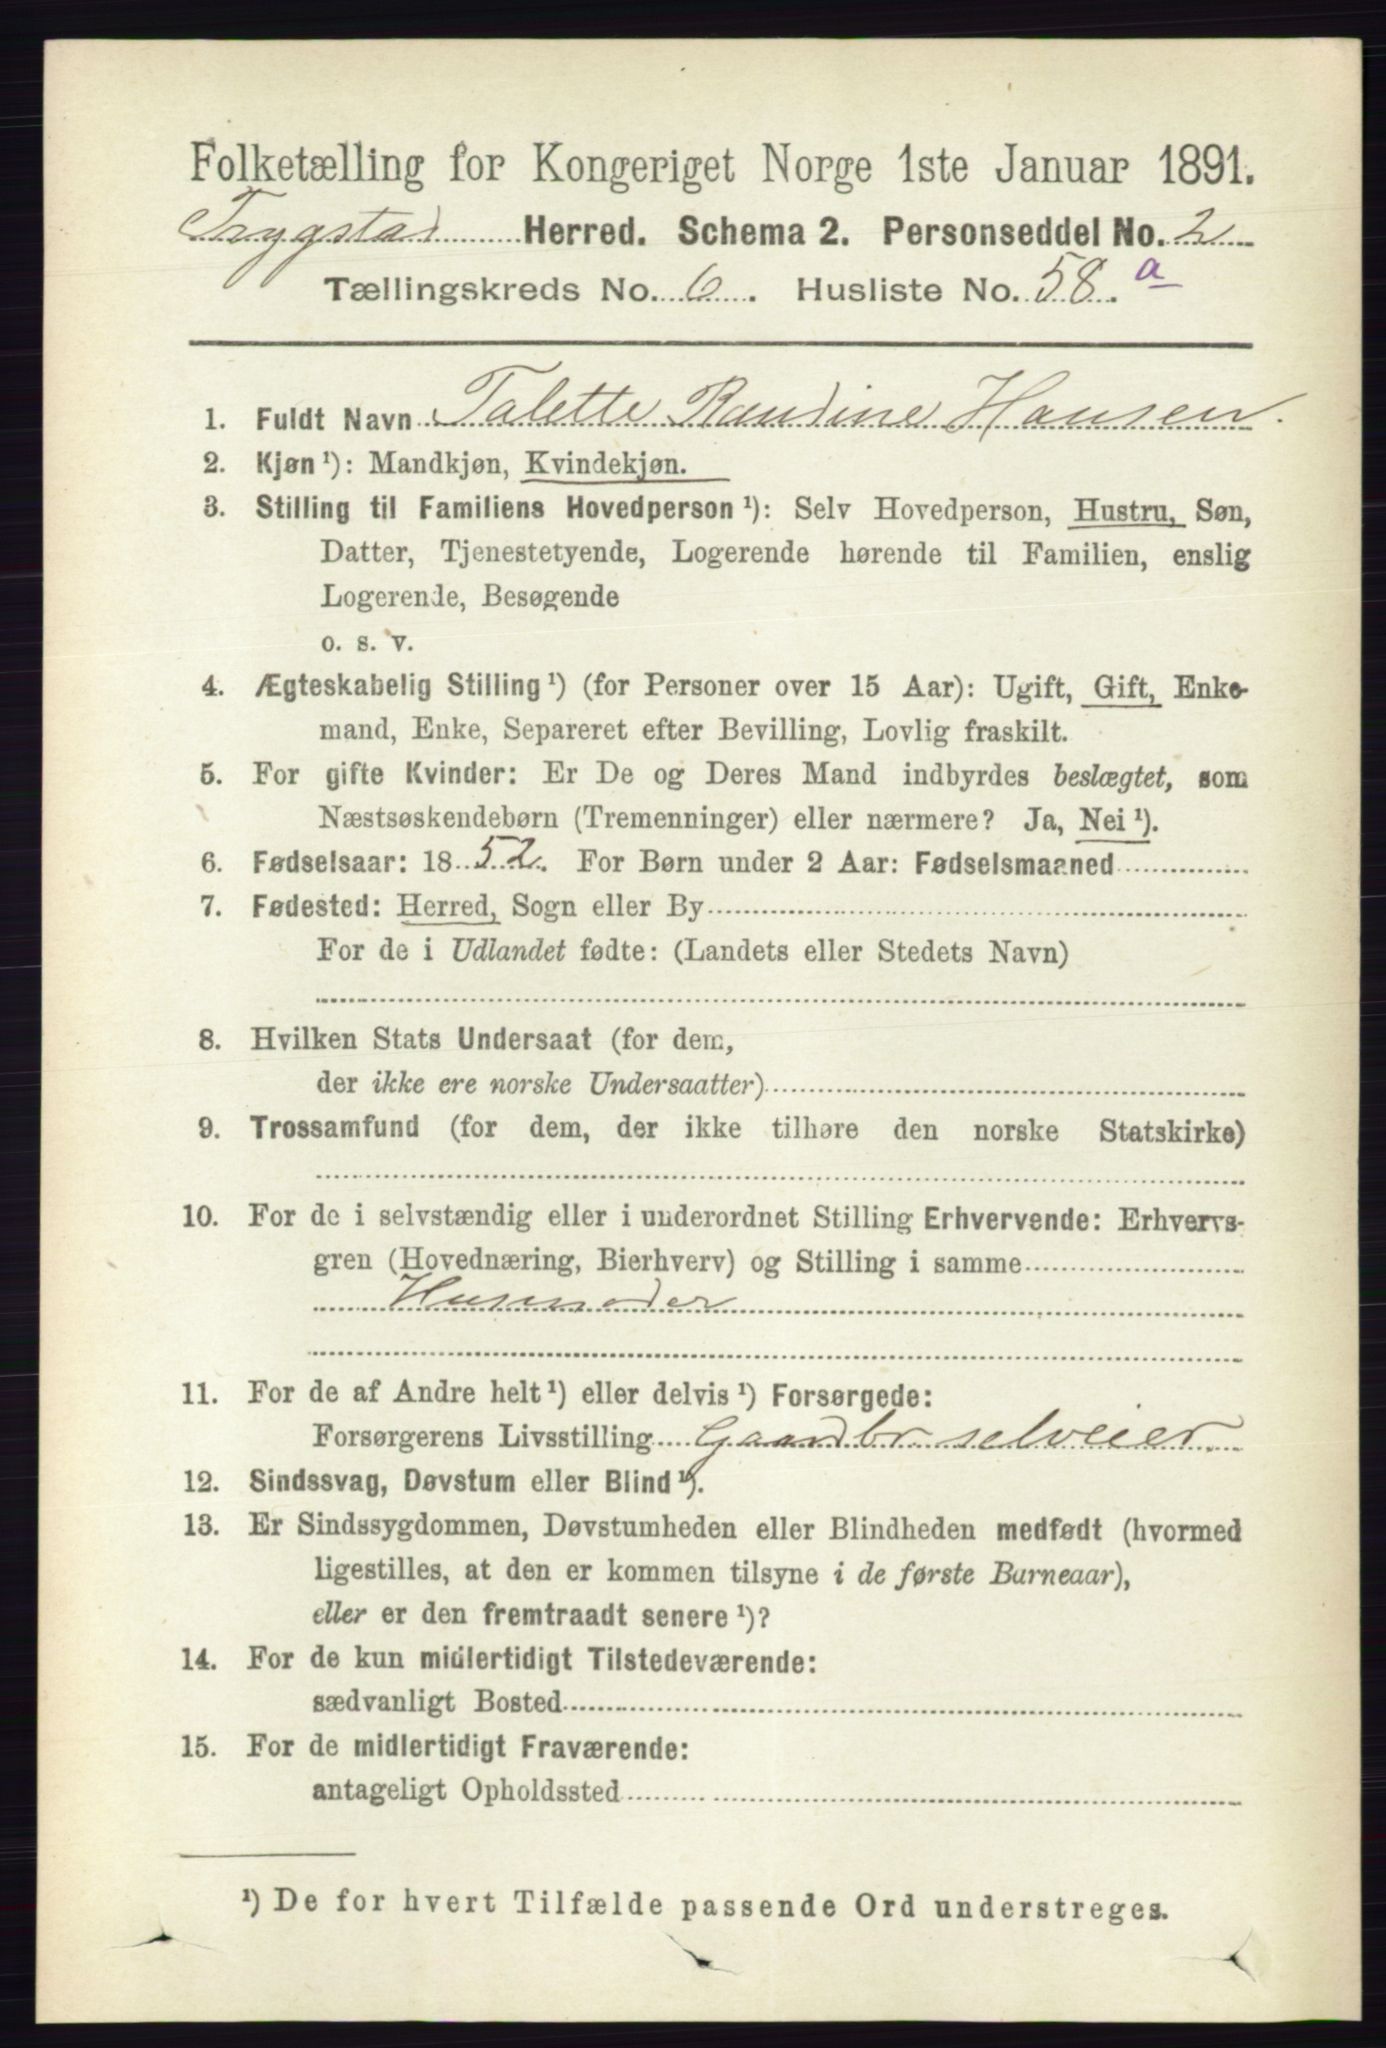 Folketælling for Kongeriget Norge 1ste Januar 1891.
Trygstad Herred. Schema 2. Personseddel No. 2
Tællingskreds No. 6. Husliste No. 58. a
1. Fuldt Navn Talette Randine Hansen.
2. Kjøn ¹): Mandkjøn, Kvindekjøn.
3. Stilling til Familiens Hovedperson ¹): Selv Hovedperson, Hustru, Søn,
Datter, Tjenestetyende, Logerende hørende til Familien, enslig
Logerende, Besøgende
o. s. v.
4. Ægteskabelig Stilling ¹) (for Personer over 15 Aar): Ugift, Gift, Enke-
mand, Enke, Separeret efter Bevilling, Lovlig fraskilt.
5. For gifte Kvinder: Er De og Deres Mand indbyrdes beslægtet, som
Næstsøskendebørn (Tremenninger) eller nærmere? Ja, Nei ¹).
6. Fødselsaar: 1852. For Børn under 2 Aar: Fødselsmaaned
7. Fødested: Herred, Sogn eller By
For de i Udlandet fødte: (Landets eller Stedets Navn)
8. Hvilken Stats Undersaat (for dem,
der ikke ere norske Undersaatter)
9. Trossamfund (for dem, der ikke tilhøre den norske Statskirke)
10. For de i selvstændig eller i underordnet Stilling Erhvervende: Erhvervs-
gren (Hovednæring, Bierhverv) og Stilling i samme
Husmoder
11. For de af Andre helt ¹) eller delvis ¹) Forsørgede:
Forsørgerens Livsstilling Gaardbr selveier
12. Sindssvag, Døvstum eller Blind ¹).
13. Er Sindssygdommen, Døvstumheden eller Blindheden medfødt (hvormed
ligestilles, at den er kommen tilsyne i de første Barneaar),
eller er den fremtraadt senere ¹)?
14. For de kun midlertidigt Tilstedeværende:
sædvanligt Bosted
15. For de midlertidigt Fraværende:
antageligt Opholdssted
¹) De for hvert Tilfælde passende Ord understreges.